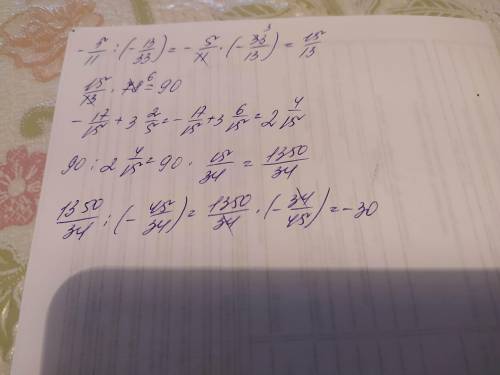 - 5/11 : (- 13/33) = - 5/11 · (- 33/13) 3 = 15/13
15/13 · 78 6 = 90
- 17/15 + 3 2/5 = - 17/15 + 3 6/15 = 2 4/15
90 : 2 4/15 = 90 · 15/34 = 1350/34
1350/34 : (- 45/34) = 1350/34 · (- 34/45) = - 30